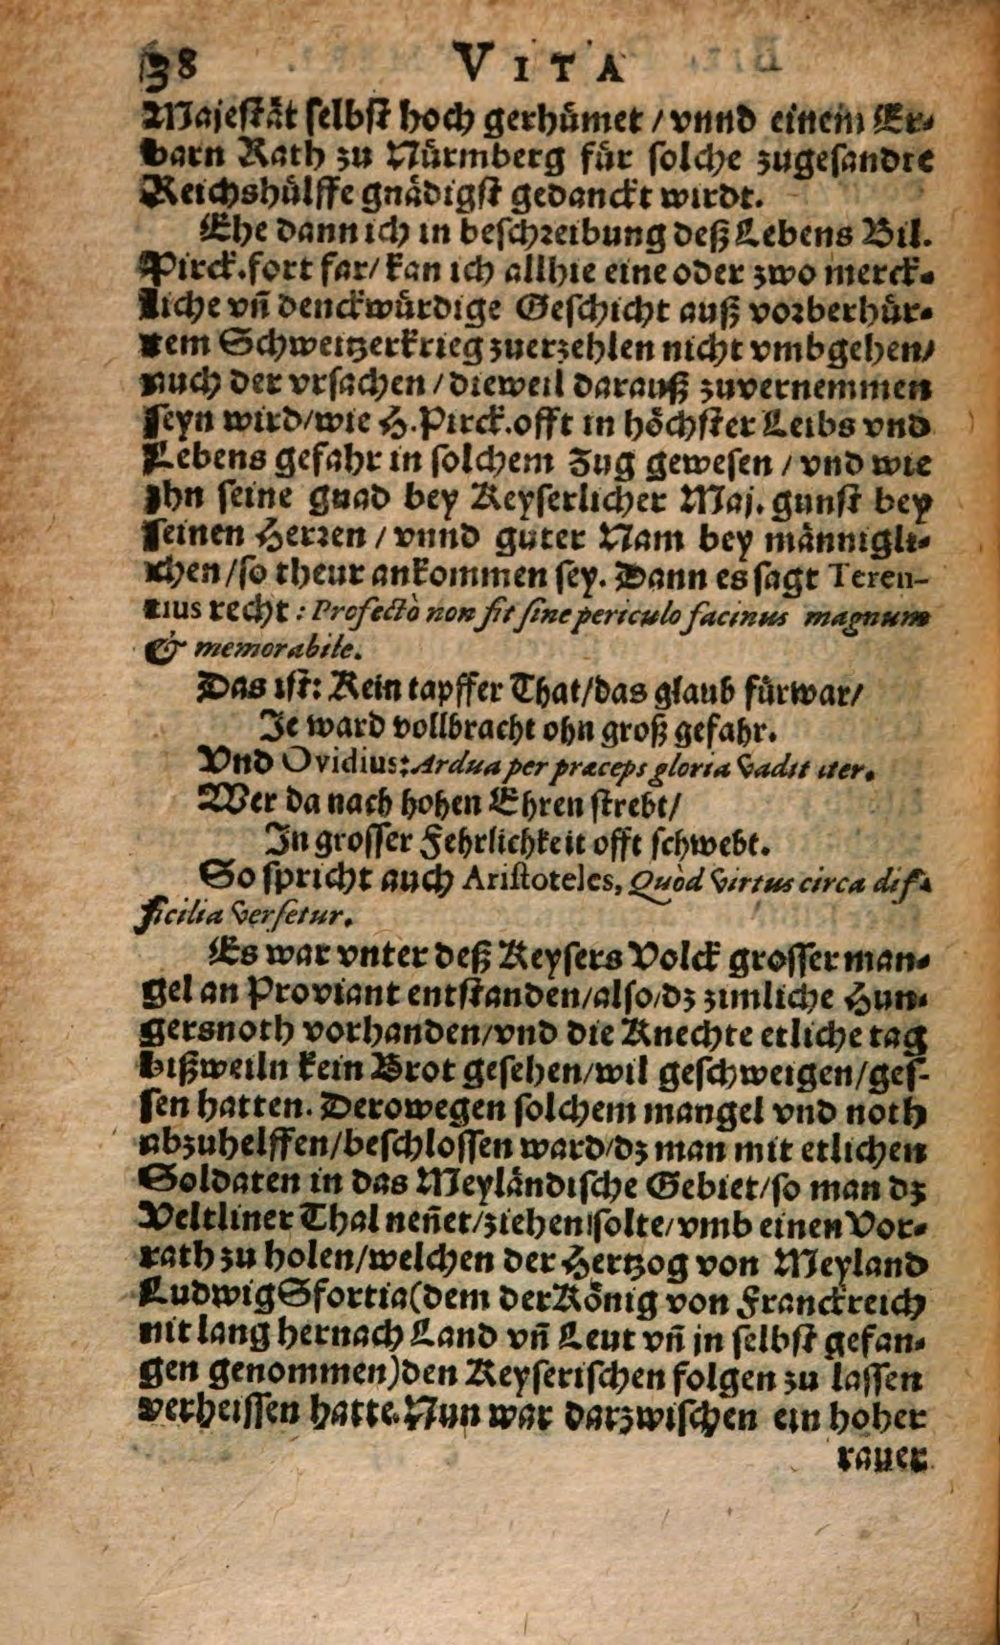 38 VITA
Majestät selbst hoch gerhümet / vnnd einem Er-
barn Rath zu Nürmberg für solche zugesandte
Reichshülffe gnädigst gedanckt wirdt.
Ehe dann ich in beschreibung deß Lebens Bil.
Pirck. fort far / kan ich allhie eine oder zwo merck-
liche vn̄ denckwürdige Geschicht auß vorberhür-
tem Schweitzerkrieg zuerzehlen nicht vmbgehen /
auch der vrsachen / dieweil darauß zuvernemmen
seyn wird / wie H. Pirck. offt in höchster Leibs vnd
Lebens gefahr in solchem Zug gewesen / vnd wie
jhn seine gnad bey Keyserlicher Maj. gunst bey
seinen Herren / vnnd guter Nam bey männigli-
chen / so theur ankommen sey. Dann es sagt Teren-
tius recht: Profectò non fit sine periculo facinus magnum
& memorabile.
Das ist: Kein tapffer That / das glaub fürwar /
Je ward vollbracht ohn groß gefahr.
Vnd Ovidius: Ardua per præceps gloria vadit iter.
Wer da nach hohen Ehren strebt /
In grosser Fehrlichkeit offt schwebt.
So spricht auch Aristoteles, Quòd virtus circa dif-
ficilia versetur.
Es war vnter deß Keysers Volck grosser man-
gel an Proviant entstanden / also / dz zimliche Hun-
gersnoth vorhanden / vnd die Knechte etliche tag
bißweiln kein Brot gesehen / wil geschweigen / ges-
sen hatten. Derowegen solchem mangel vnd noth
abzuhelffen / beschlossen ward / dz man mit etlichen
Soldaten in das Meyländische Gebiet / so man dz
Veltliner Thal nen̄et / ziehen solte / vmb einen Vor-
rath zu holen / welchen der Hertzog von Meyland
Ludwig Sfortia (dem der König von Franckreich
nit lang hernach Land vn̄ Leut vn̄ jn selbst gefan-
gen genommen) den Keyserischen folgen zu lassen
verheissen hatte. Nun war darzwischen ein hoher
rauer